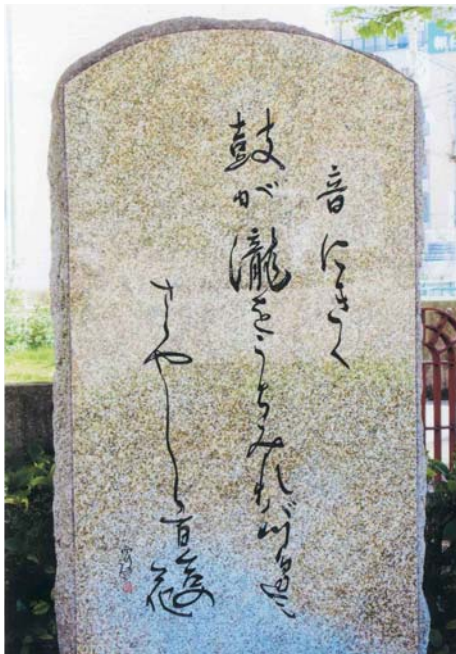 音にきく
鼓が瀧をうちみれば川邊に
さくやしら百合の花